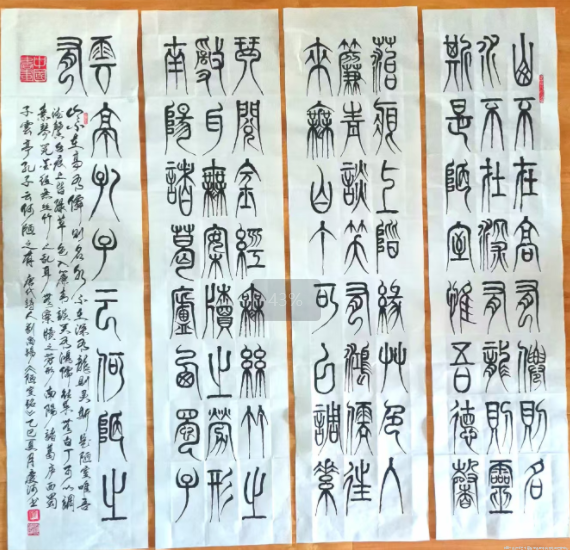 山不在高有僊則名
水不在深有龍則靈
斯是陋室惟吾德馨
苔痕上階緣艸色入
簾青談笑有鴻儒往
來無白丁可以調素
琴閱金經無絲竹之
亂耳無案牘之勞形
南陽諸葛廬西蜀子
雲亭孔子云何陋之
有
山不在高有僊則名水不在深有龍則靈斯是陋室唯吾
德馨苔痕上階綠草色入簾青談笑有鴻儒往來無白丁可以調
素琴閱金經無絲竹之亂耳無案牘之勞形南陽諸葛廬西蜀
子雲亭孔子云何陋之有 唐代詩人劉禹錫《陋室銘》乙巳夏月
中國
43%